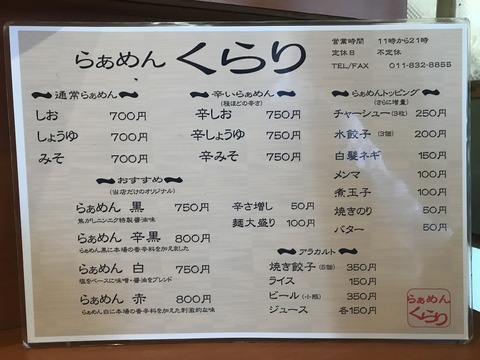 らぁめん くらり
営業時間 11時から21時
定休日 不定休
TEL/FAX 011-832-8855
通常らぁめん
しお 700円
しょうゆ 700円
みそ 700円
辛いらぁめん
(程ほどの辛さ)
辛しお 750円
辛しょうゆ 750円
辛みそ 750円
らぁめんトッピング
(さらに増量)
チャーシュー(3枚) 250円
水餃子(3個) 200円
白髪ネギ 150円
メンマ 100円
煮玉子 100円
焼きのり 50円
バター 50円
おすすめ
(当店だけのオリジナル)
らぁめん 黒 750円
焦がしニンニク特製醤油味
らぁめん 辛黒 800円
らぁめん黒に本場の香辛料を加えました
らぁめん 白 750円
塩をベースに味噌・醤油をブレンド
らぁめん 赤 800円
らぁめん白に本場の香辛料を加えた刺激的な味
辛さ増し 50円
麺大盛り 100円
アラカルト
焼き餃子(5個) 350円
ライス 150円
ビール(小瓶) 350円
ジュース 各150円
らぁめん
くらり